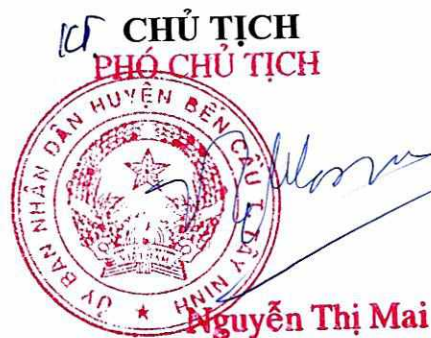 KT CHỦ TỊCH
PHÓ CHỦ TỊCH
ỦY BAN NHÂN DÂN HUYỆN BẾN CẦU T. TÂY NINH
Nguyễn Thị Mai